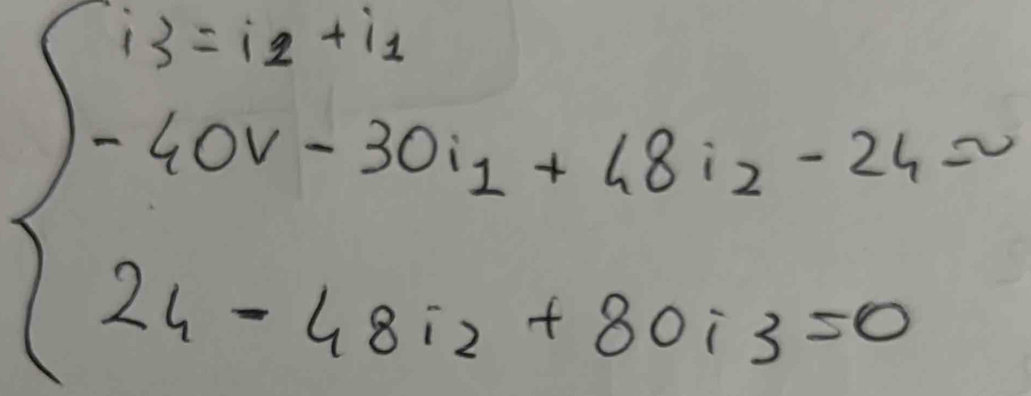 i3 = i2 + i1
- 40V - 30i1 + 48i2 - 24 = 0
24 - 48i2 + 80i3 = 0